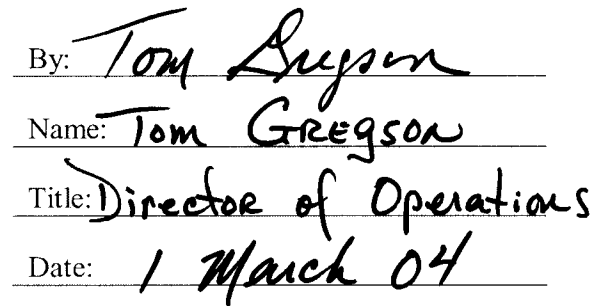 By: Tom Gregson
Name: Tom GREGSON
Title: Director of Operations
Date: 1 March 04